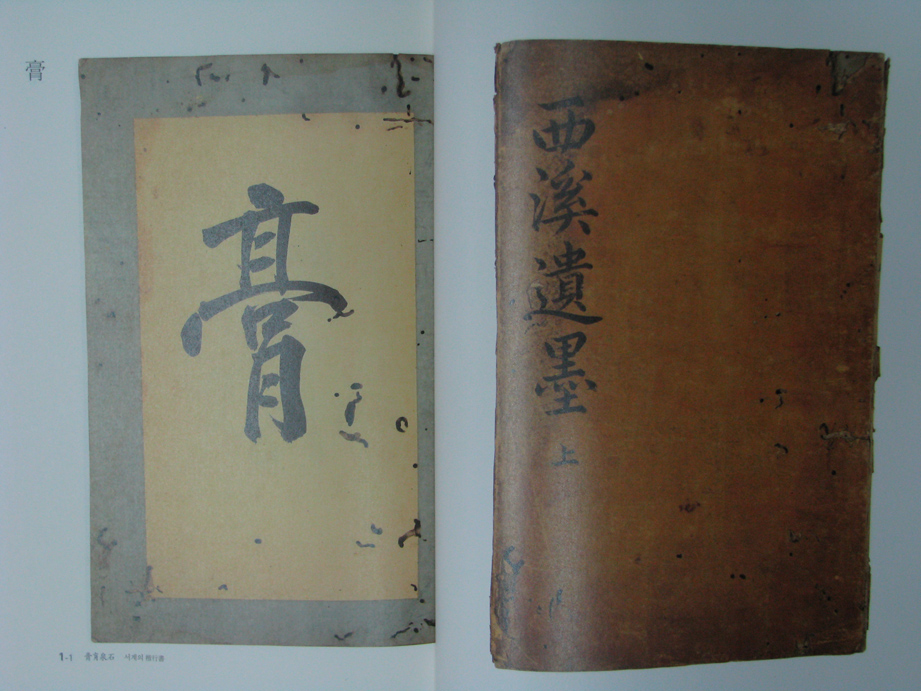 膏
膏
1-1 膏肓泉石
西溪遺墨 上